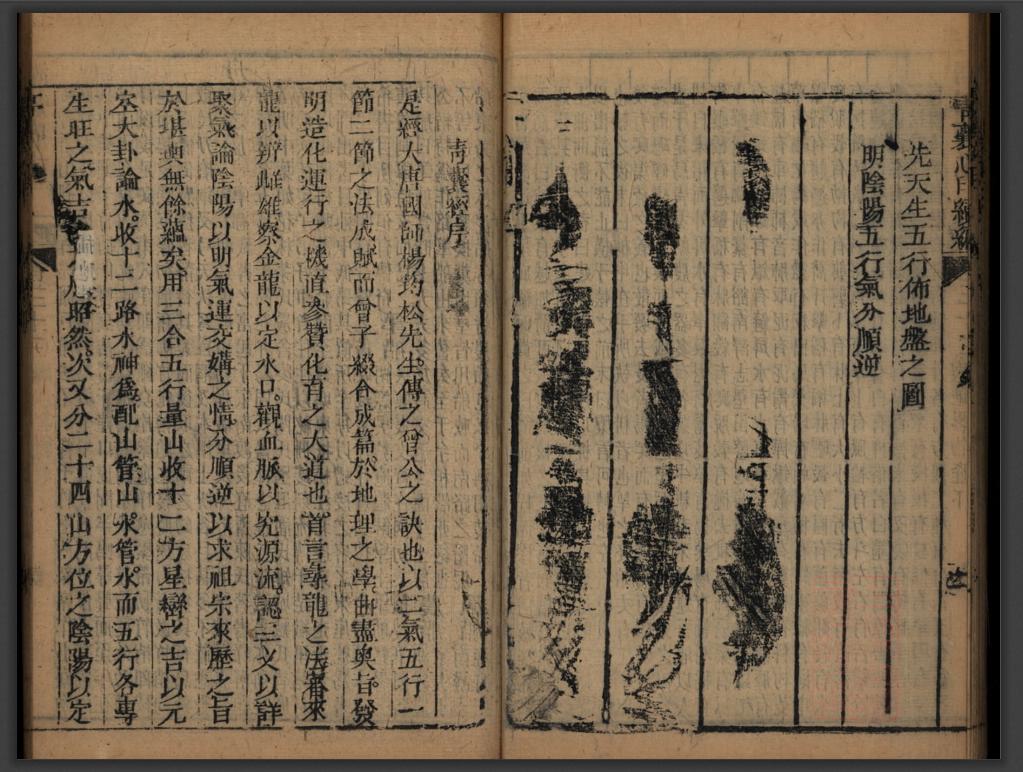 先天生五行佈地盤之圖
明陰陽五行氣分順逆
青囊經序
是經大唐國師楊筠松先生傳之曾公之訣也以二氣五行一
節二節之法成賦而曾子綴合成篇於地理之學曲盡奧旨發
明造化運行之機直參贊化育之大道也首言尋龍之法審來
龍以辨雌雄察金龍以定水口觀血脈以究源流認三叉以詳
聚氣論陰陽以明氣運交媾之情分順逆以求祖宗來歷之旨
於堪輿無餘蘊矣用三合五行量山收十二方星巒之吉以元
空大卦論水收十二路水神為配山管山水管水而五行各專
生旺之氣吉凶昭然次又分二十四山方位之陰陽以定